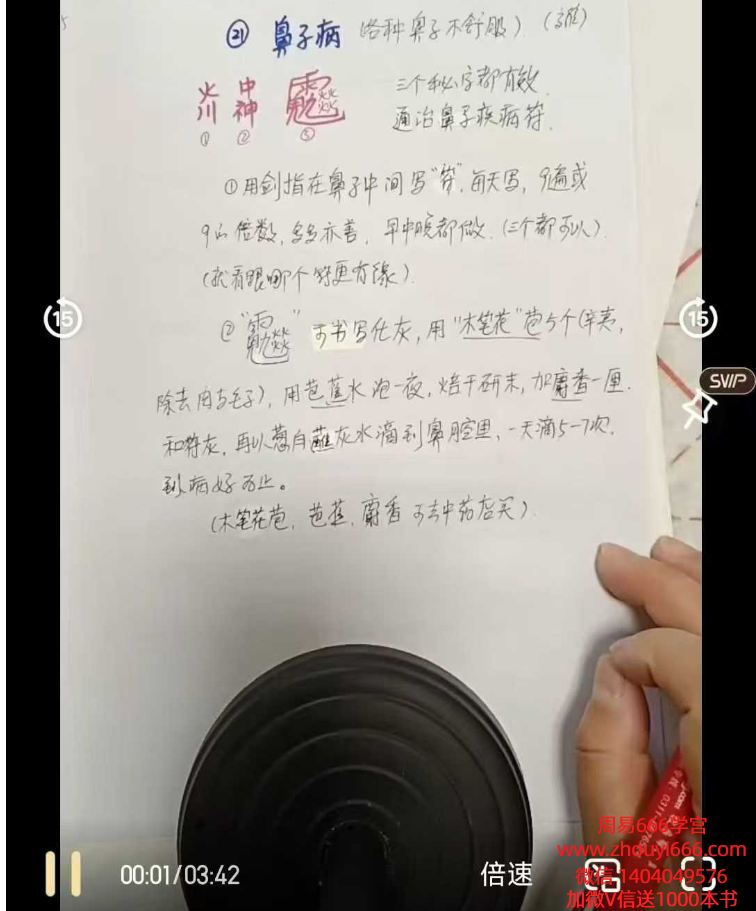 ㉑ 鼻子病 (各种鼻子不舒服)
三个秘字都有效.
火川 ① 中神 ② ③
通治鼻子疾病符.
①用剑指在鼻子中间写"符",每天写,9遍或
9的倍数,多多亦善,早中晚都做.(三个都可以).
(就看跟哪个符更有缘).
② 可书写化灰,用"木笔花"苞5个(辛荑,
除去肉与毛子),用芭蕉水泡一夜,焙干研末,加麝香一厘.
和符灰,再以葱白蘸灰水滴到鼻腔里,一天滴5-7次,
到病好为止。
(木笔花苞,芭蕉,麝香可去中药店买).
15
15
SVIP
周易666学宫
www.zhouyi666.com
微信1404049576
加微V信送1000本书
00:01/03:42
倍速